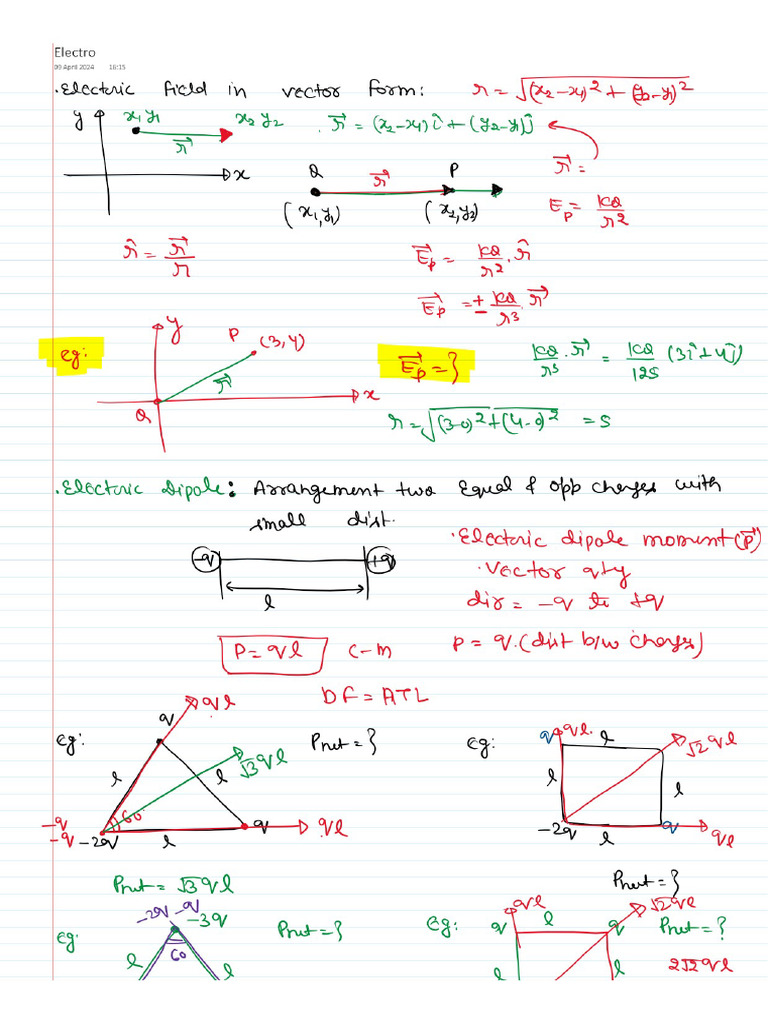 Electro
09 April 2024 16:15
· Electric field in vector form: r = √(x₂-x₁)² + (y₂-y₁)²
y x₁y₁ x₂y₂ . r⃗ = (x₂-x₁)î + (y₂-y₁)ĵ
r⃗
x
Q r⃗ P r⃗ =
(x₁,y₁) (x₂,y₂) E_P = kQ/r²
r̂ = r⃗/r E⃗_P = kQ/r² . r̂
E⃗_P = ± kQ/r³ . r⃗
eg: y P (3,4) E⃗_P = } kQ/r³ . r⃗ = kQ/125 (3î+4ĵ)
r⃗
Q x r = √(3-0)²+(4-0)² = 5
· Electric Dipole: Arrangement two Equal & opp charges with
small dist.
· Electric dipole moment (P⃗)
-q +q · Vector qty
l dir = -q to +q
P = ql C-m P = q.(dist b/w charges)
DF = ATL
eg: q ql Pnet = }
l √3ql l
60
-q
-q -2q l q ql
Pnet = √3ql
eg: q ql. l √2ql
l l
-2q l q ql
Pnet = }
eg: -2q -q -3q Pnet = }
60
l l
eg: q ql l q √2ql Pnet = ?
l l 2√2ql